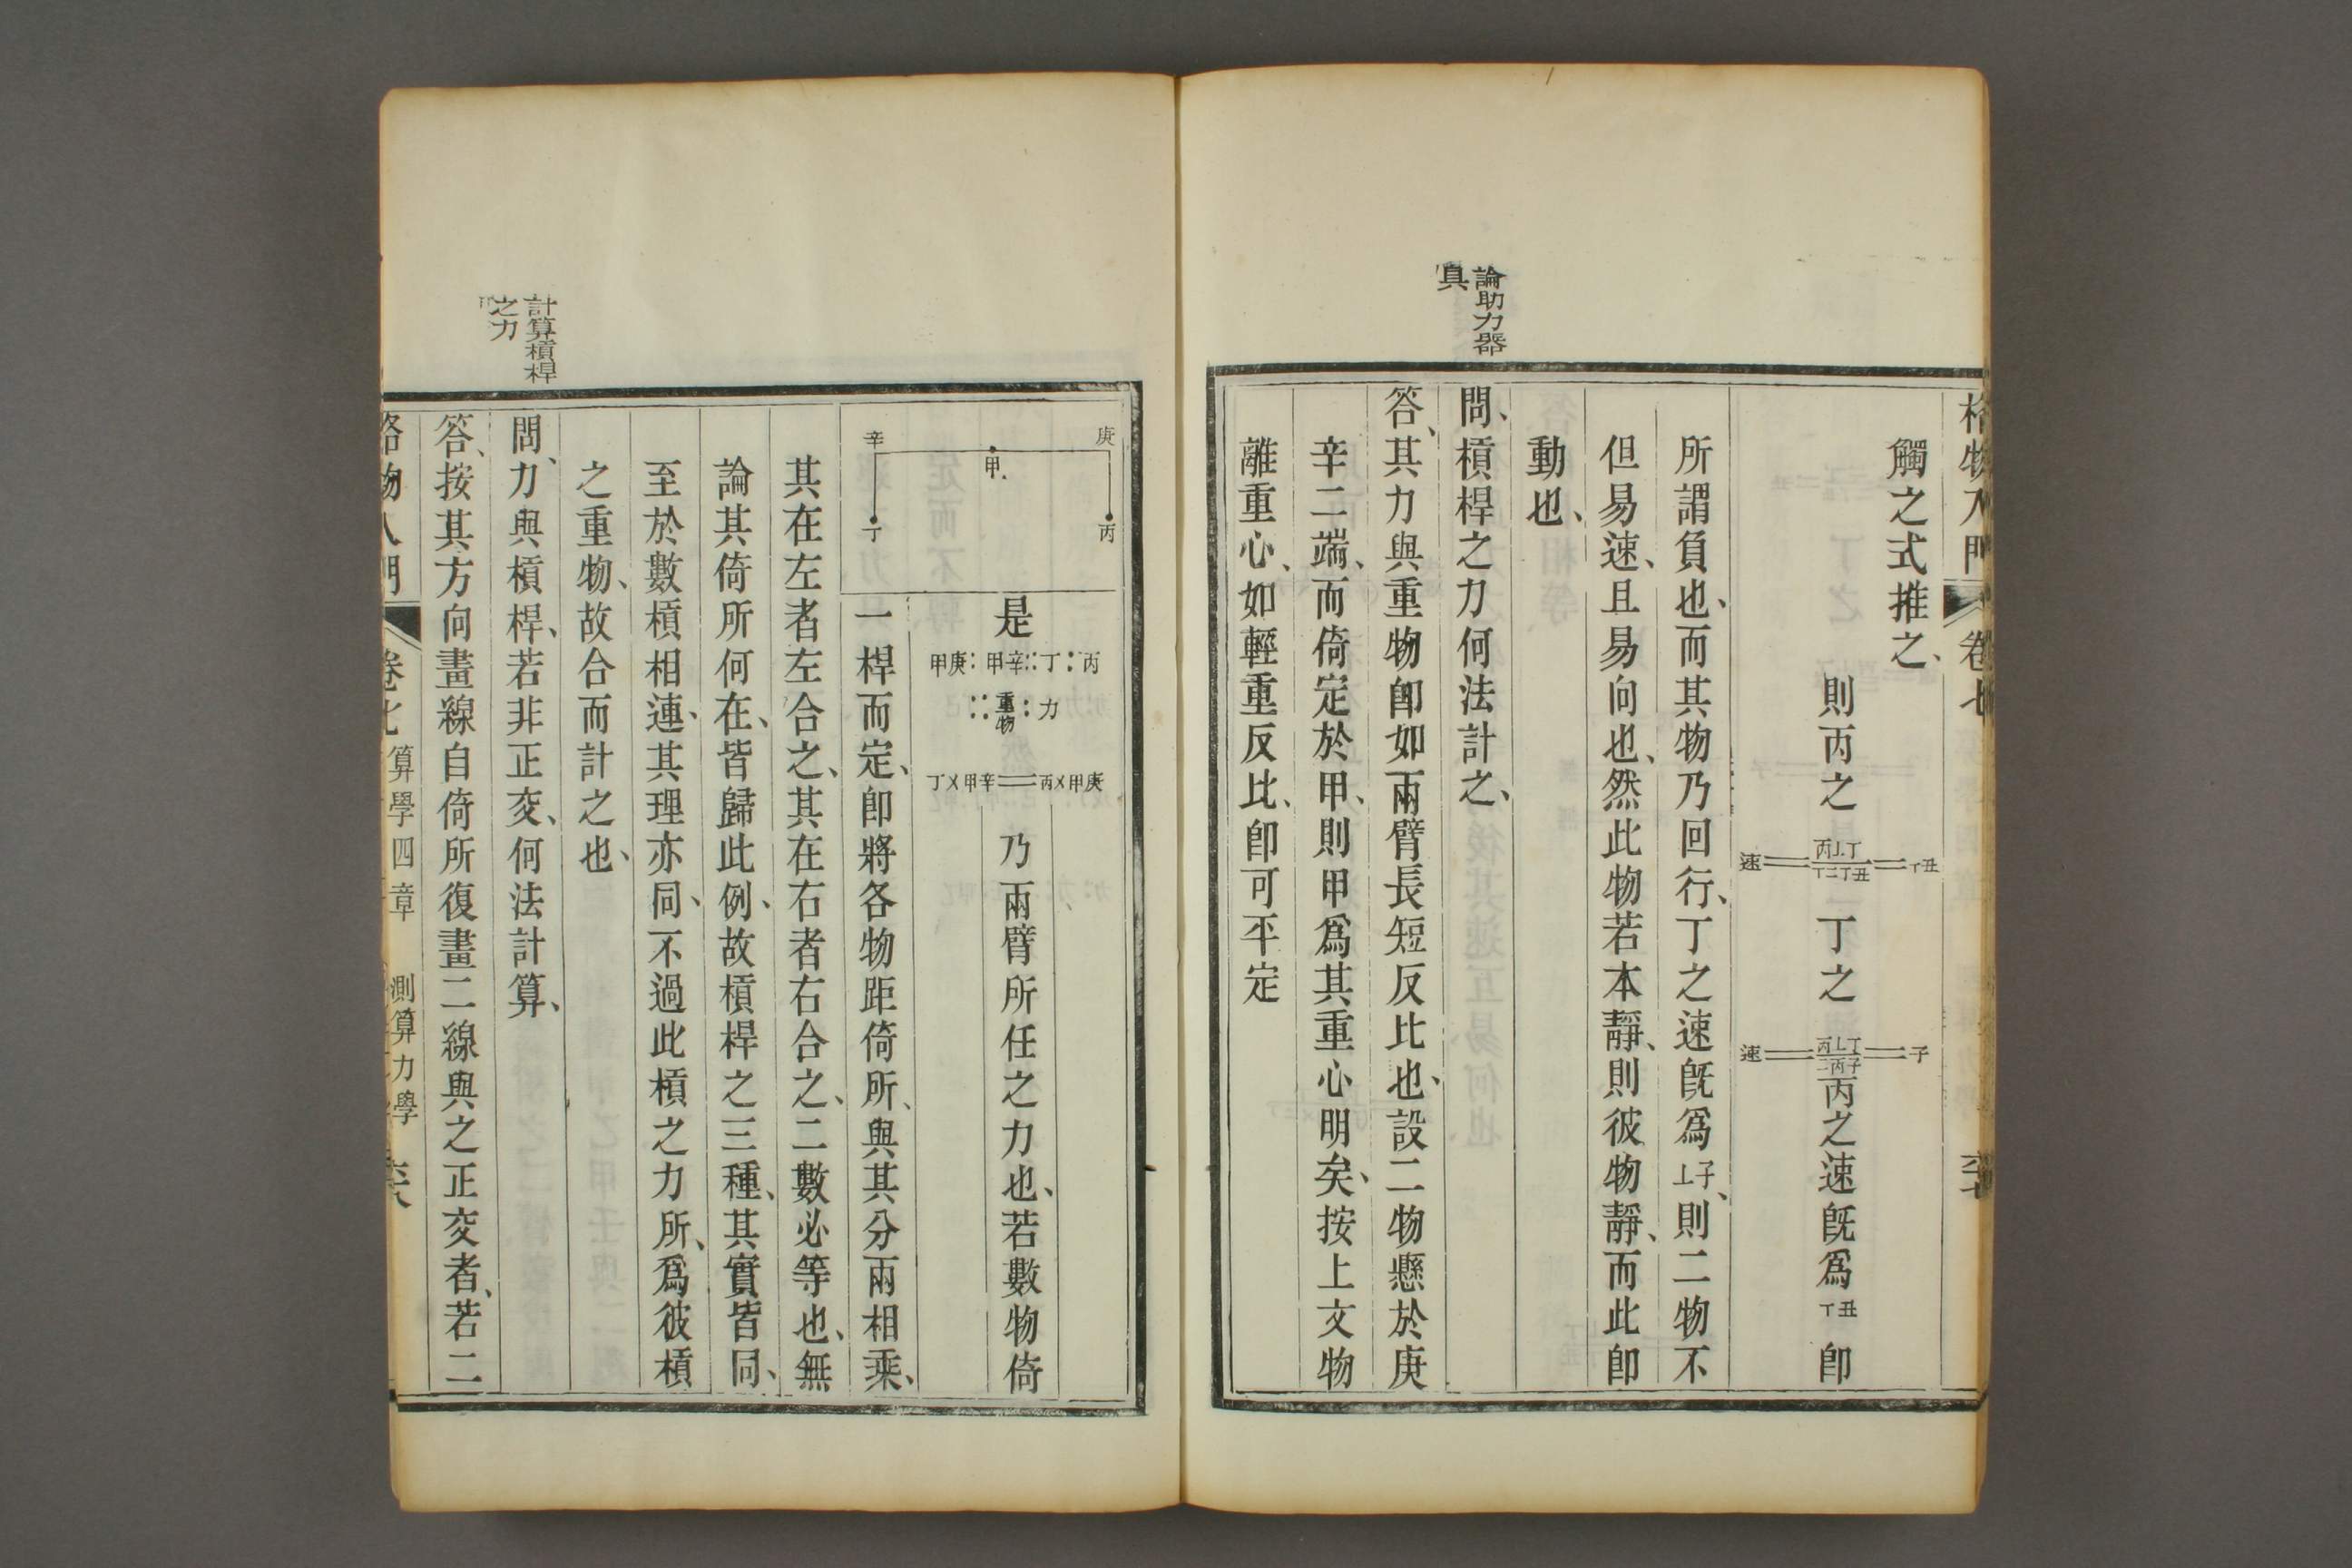 格物入門 卷七
觸之式推之、
則丙之 速＝丙⊥丁/丁二丁丑＝丁丑 丁之 速＝丙⊥丁/二丙子＝子 丙之速旣爲丁丑卽
所謂負也、而其物乃回行、丁之速旣爲⊥子、則二物不
但易速、且易向也、然此物若本靜、則彼物靜、而此卽
動也、
論助力器具
問、槓桿之力何法計之、
答、其力與重物卽如兩臂長短反比也、設二物懸於庚
辛二端、而倚定於甲、則甲爲其重心明矣、按上文物
離重心、如輕重反比、卽可平定
庚
辛
甲
丙
丁
是
丙：丁：：甲辛：甲庚
力：重物：：
庚甲×丙＝辛甲×丁
乃兩臂所任之力也、若數物倚
一桿而定、卽將各物距倚所、與其分兩相乘、
其在左者左合之、其在右者右合之、二數必等也、無
論其倚所何在、皆歸此例、故槓桿之三種、其實皆同、
至於數槓相連、其理亦同、不過此槓之力所、爲彼槓
之重物、故合而計之也、
計算槓桿之力
問、力與槓桿、若非正交、何法計算、
答、按其方向畫線自倚所復畫二線與之正交者、若二
格物入門 卷七 算學四章 測算力學 六八